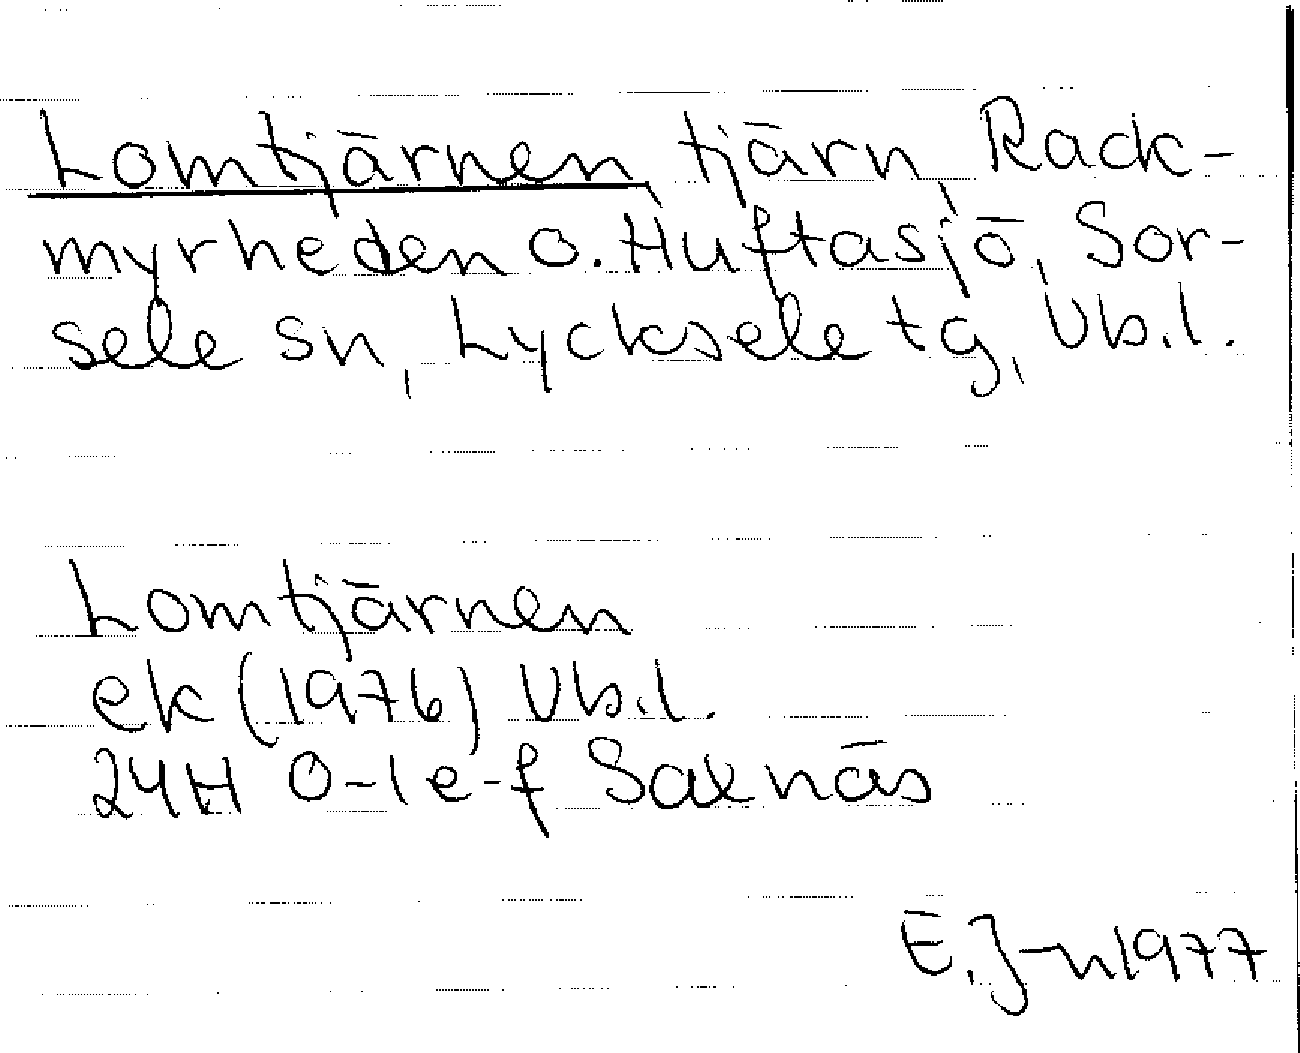 Lomtjärnen, tjärn, Rack-
myrheden o. Huftasjö, Sor-
sele sn, Lycksele tg, Vb.l.
Lomtjärnen
ek (1976) Vb.l.
24H 0-1 e-f Saxnäs
E.J-n 1977